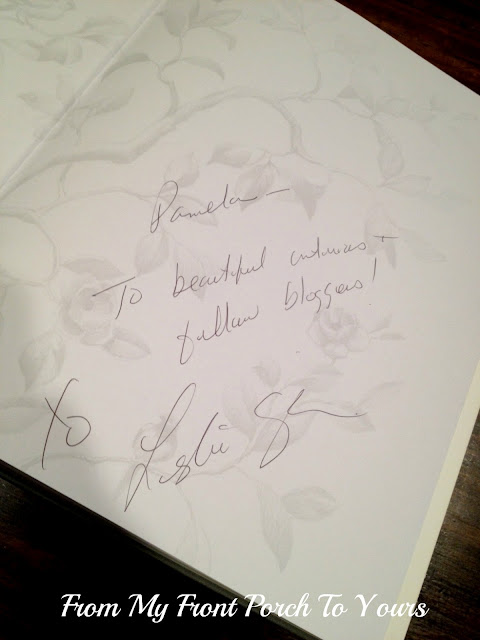 Pamela —
To beautiful interiors +
fellow bloggers!
Xo Leslie
From My Front Porch To Yours